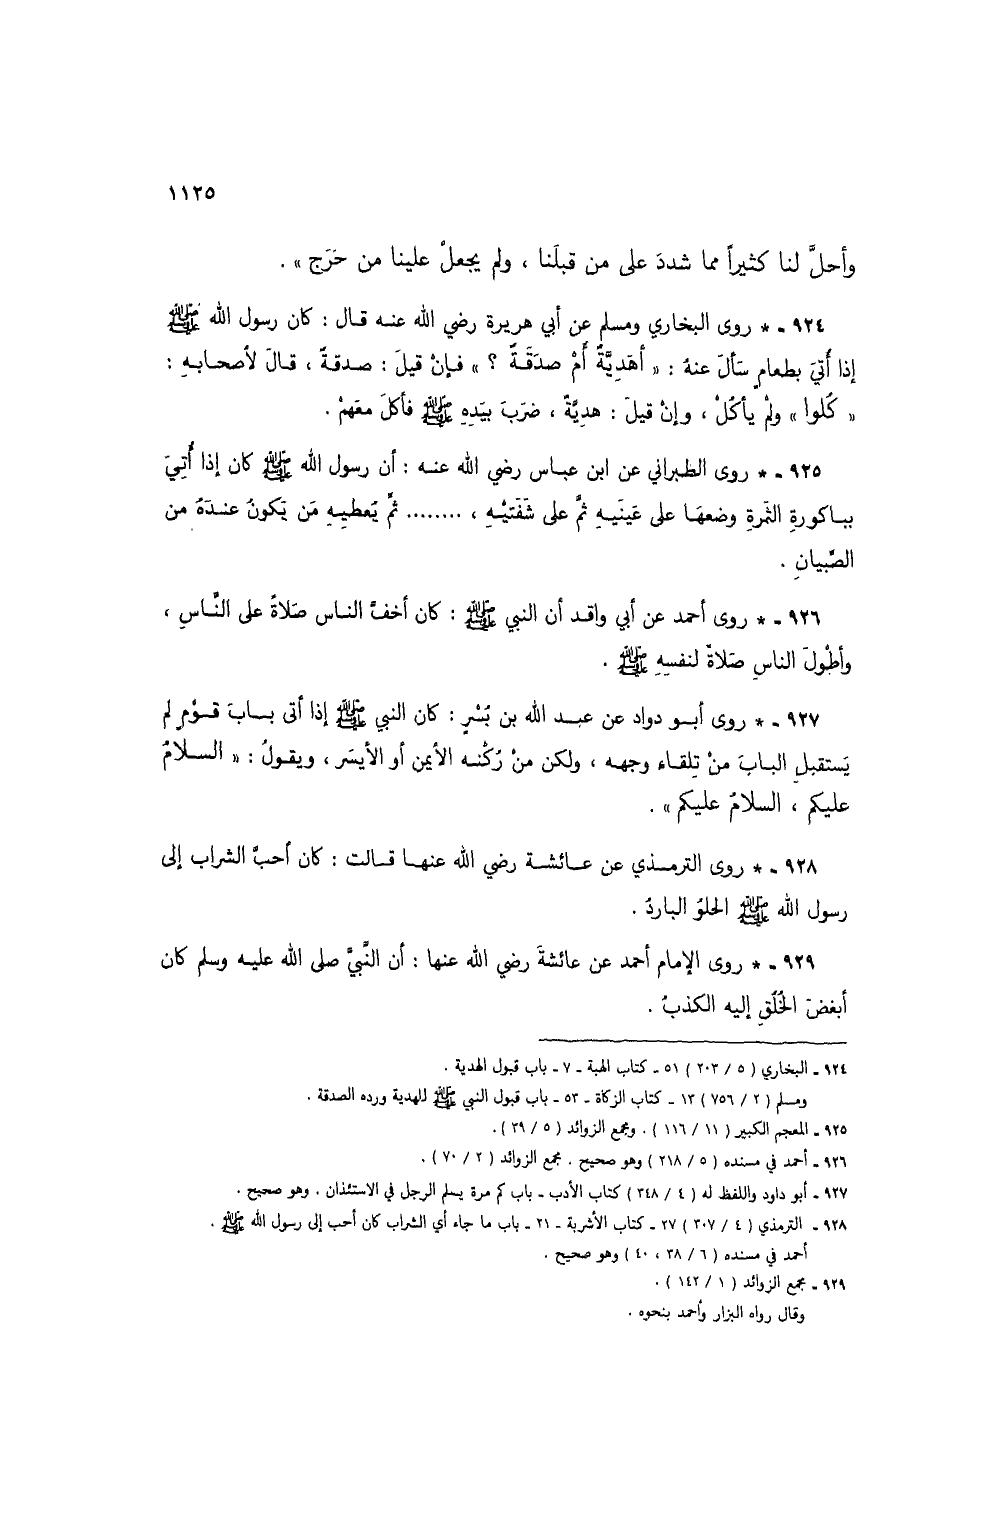 ١١٢٥
وأحلَّ لنا كثيراً مما شددَ على من قبلَنا ، ولم يجعلْ علينا من حَرَج » .
٩٢٤ ـ * روى البخاري ومسلم عن أبي هريرة رضي الله عنه قال : كان رسول الله ﷺ
إذا أُتيَ بطعامٍ سَألَ عنهُ : « أهَدِيَّةٌ أمْ صدَقَةٌ ؟ » فإنْ قيلَ : صدقةٌ ، قالَ لأصحابهِ :
« كُلوا » ولمْ يأكُلْ ، وإنْ قيلَ : هديَّةٌ ، ضرَبَ بيَدِهِ ﷺ فأكلَ معَهمْ .
٩٢٥ ـ * روى الطبراني عن ابن عباس رضي الله عنه : أن رسول الله ﷺ كان إذا أُتِيَ
بباكورةِ الثَّمرةِ وضعهَا على عَينَيهِ ثمَّ على شَفَتيْهِ ، ........ ثمَّ يُعطيهِ مَن يَكونُ عندَهُ من
الصِّبيانِ .
٩٢٦ ـ * روى أحمد عن أبي واقد أن النبي ﷺ : كان أخفَّ الناس صَلاةً على النَّاسِ ،
وأطْولَ الناسِ صَلاةً لنفسِهِ ﷺ .
٩٢٧ ـ * روى أبو دواد عن عبد الله بن بُسْرٍ : كان النبي ﷺ إذا أتى بابَ قوْمٍ لم
يَستقبلِ البابَ منْ تِلقاء وجهه ، ولكن منْ رُكْنه الأيمن أو الأيسَر ، ويقولُ : « السلامُ
عليكم ، السلامُ عليكم » .
٩٢٨ ـ * روى الترمذي عن عائشة رضي الله عنها قالت : كان أحبَّ الشراب إلى
رسول الله ﷺ الحلوُ الباردُ .
٩٢٩ ـ * روى الإمام أحمد عن عائشةَ رضي الله عنها : أن النَّبيَّ صلى الله عليه وسلم كان
أبغضَ الخُلُقِ إليه الكذبُ .
٩٢٤ ـ البخاري ( ٥ / ٢٠٣ ) ٥١ ـ كتاب الهبة ـ ٧ ـ باب قبول الهدية .
ومسلم ( ٢ / ٧٥٦ ) ١٣ ـ كتاب الزكاة ـ ٥٣ ـ باب قبول النبي ﷺ للهدية ورده الصدقة .
٩٢٥ ـ المعجم الكبير ( ١١ / ١١٦ ) . ومجمع الزوائد ( ٥ / ٣٩ ) .
٩٢٦ ـ أحمد في مسنده ( ٥ / ٢١٨ ) وهو صحيح . مجمع الزوائد ( ٢ / ٧٠ ) .
٩٢٧ ـ أبو داود واللفظ له ( ٤ / ٣٤٨ ) كتاب الأدب ـ باب كم مرة يسلم الرجل في الاستئذان . وهو صحيح .
٩٢٨ ـ الترمذي ( ٤ / ٣٠٧ ) ٢٧ ـ كتاب الأشربة ـ ٢١ ـ باب ما جاء أي الشراب كان أحب إلى رسول الله ﷺ .
أحمد في مسنده ( ٦ / ٣٨ ، ٤٠ ) وهو صحيح .
٩٢٩ ـ مجمع الزوائد ( ١ / ١٤٢ ) .
وقال رواه البزار وأحمد بنحوه .